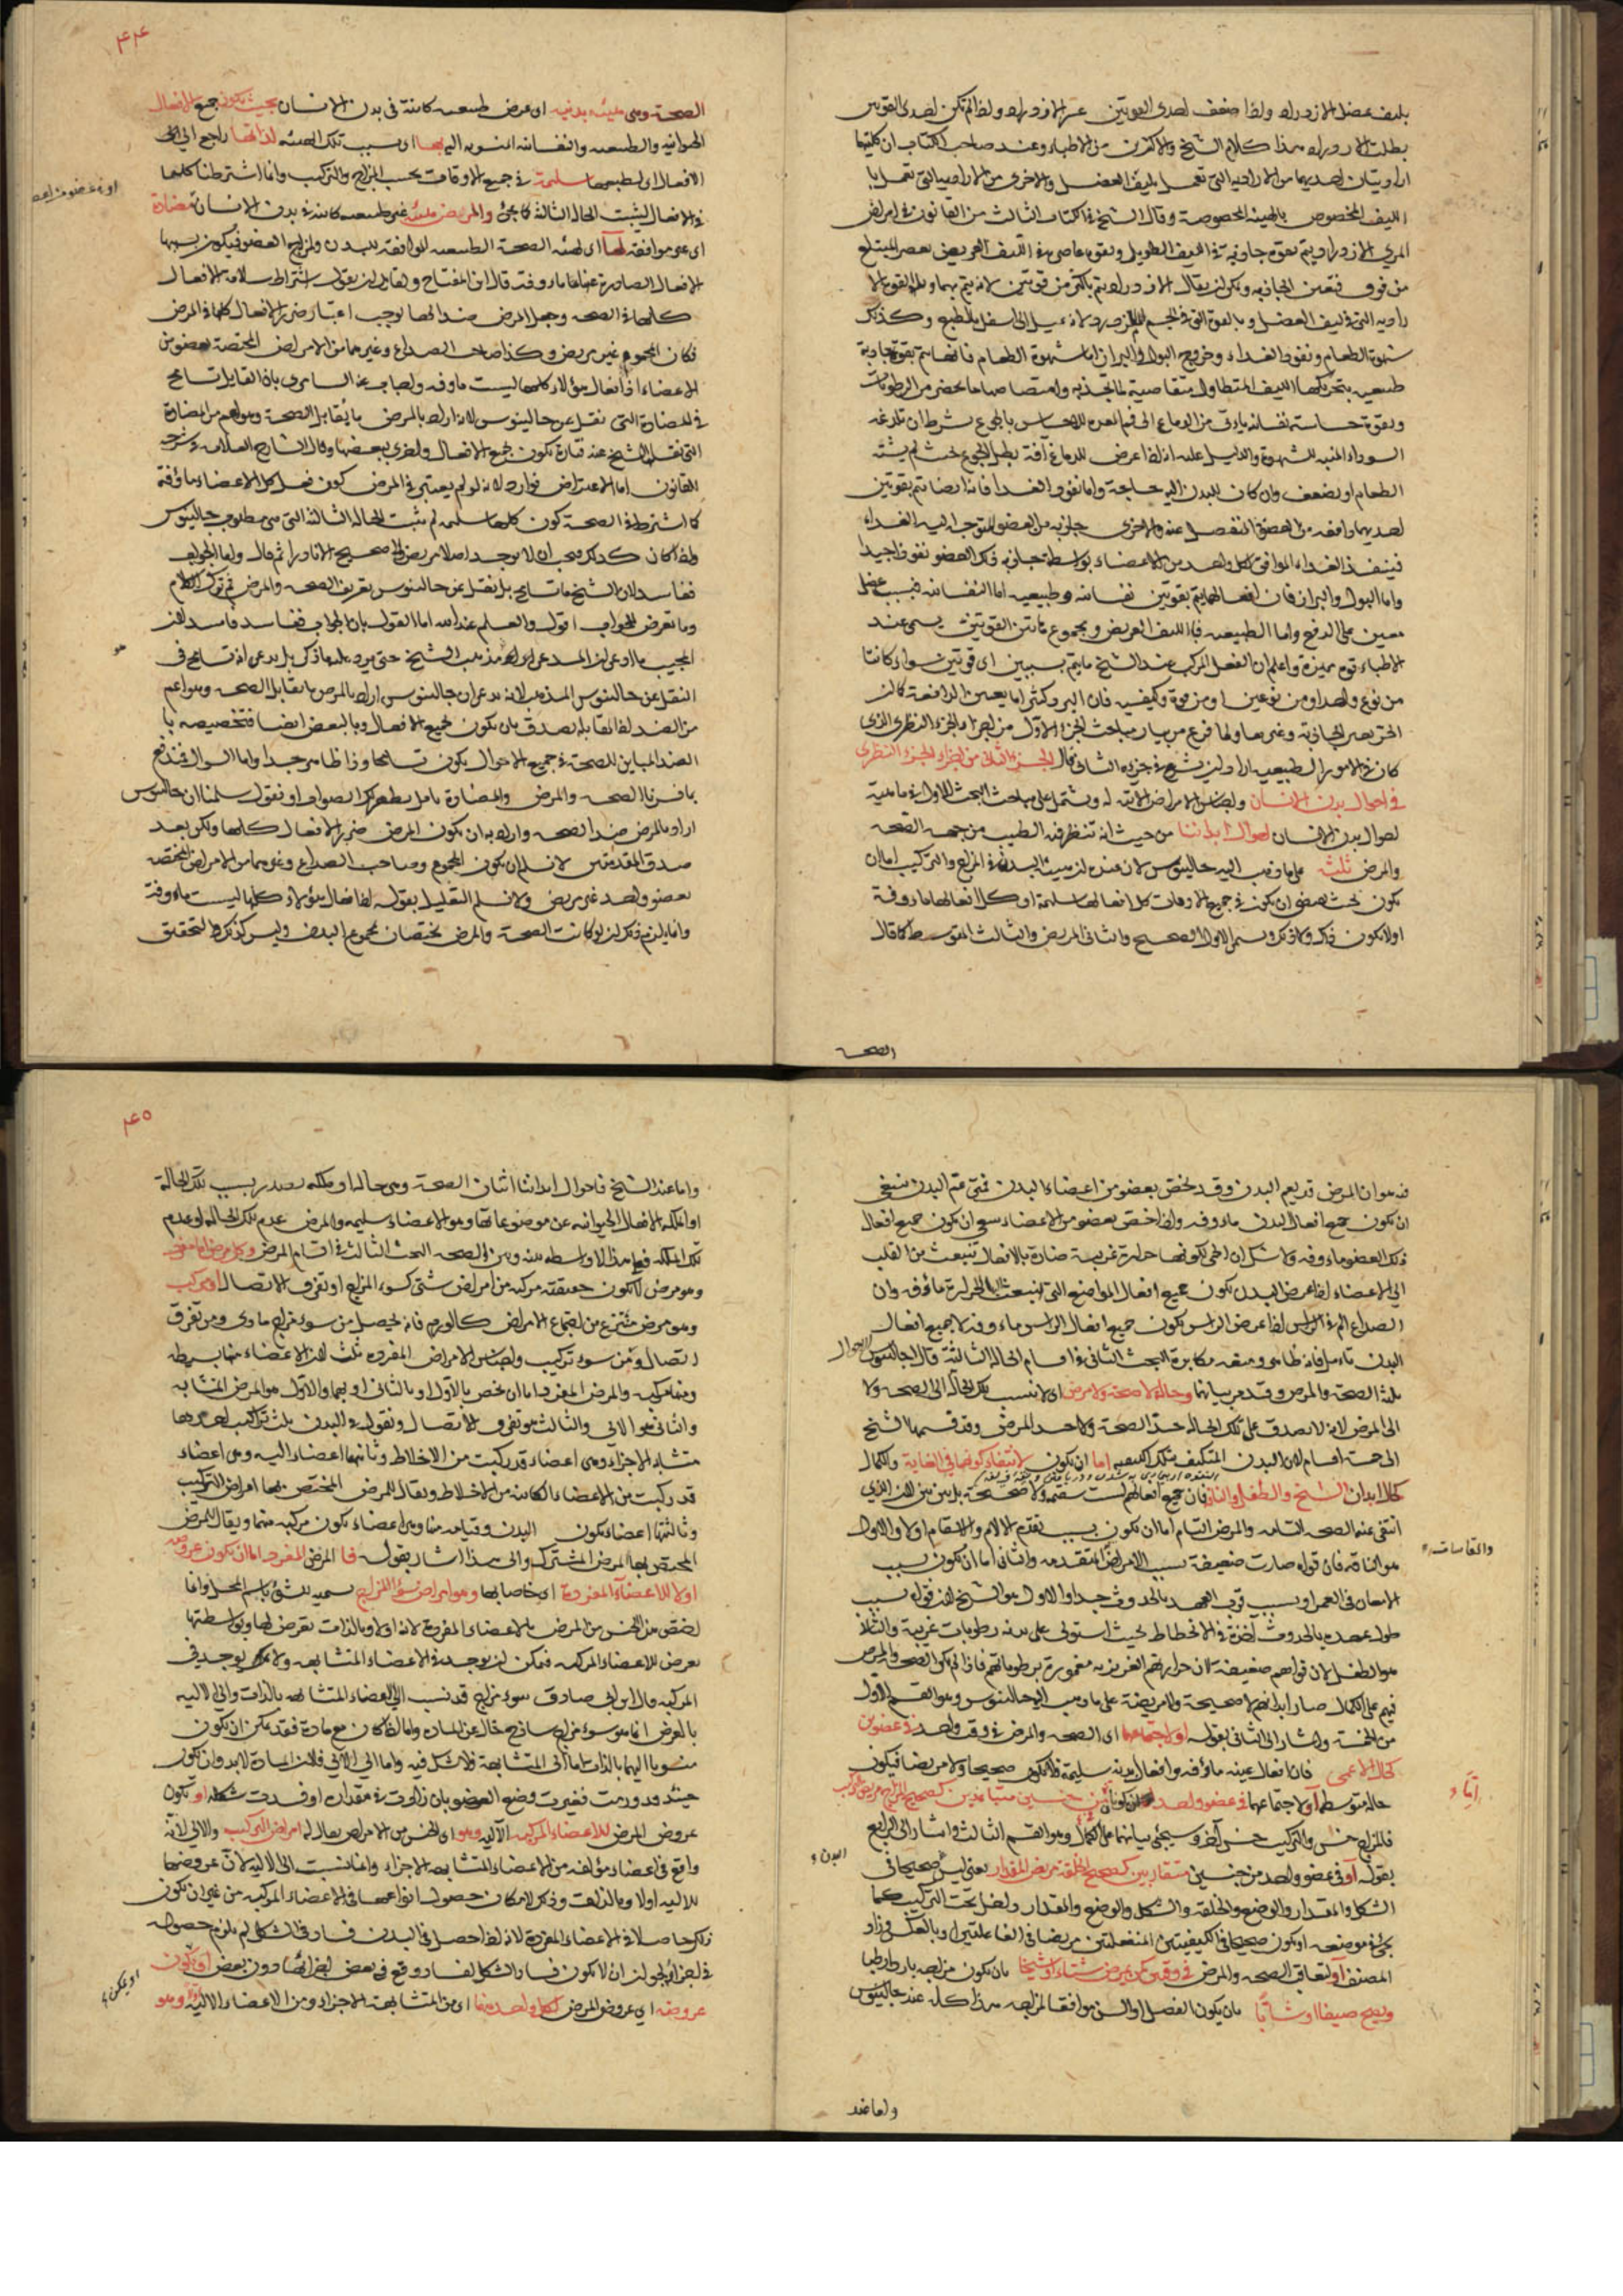 بليف عضل الازدراد واذا ضعف احدى القوتين عسر الازدراد واذا لم تكن احدى القوتين
بطلت الازدراد هذا كلام الشيخ والاكثرين من الاطباء وعند صاحب الكتاب ان كليهما
اراديتان احديهما من الارادية التي تعمل بليف العضل والاخرى من الارادية التي تعمل بال
الليف المخصوص بالهيئة المخصوصة وقال الشيخ في الكتاب الثالث من القانون في امراض
المري الازدراد يتم بقوة جاذبة في الليف الطويل وبقوة عاصرة في الليف العريض بعصر المبتلع
من فوق فتعين الجاذبة ويمكن ان يقال الازدراد يتم باكثر من قوتين لانه يتم بهما وبالقوة الا
رادية التي في ليف العضل وبالقوة التي في الجسم لانه يميل الى اسفل بالطبع وكذلك
شهوة الطعام ونفوذ الغذاء وخروج البول والبراز اما شهوة الطعام فانها تتم بقوة جاذبة
طبيعية بتحريكها الليف المتطاول متقاضية لما تجذبه وامتصاصها ما يحضر من الرطوبات
وبقوة حساسة نفسانية تاتي من الدماغ الى فم المعدة للاحساس بالجوع بشرط ان تلدغه
السوداء المنبه للشهوة والدليل عليه انه اذا عرض للدماغ آفة بطل الجوع بحيث لم يشته
الطعام او يضعف وان كان للبدن اليه حاجة واما نفوذ الغذاء فانه ايضا يتم بقوتين
احديهما دافعة من العضو المنفصل عنه والاخرى جاذبة من العضو المتوجه اليه الغذاء
فينفذ الغذاء الموافق لكل واحد من الاعضاء بواسطة جاذبة ذلك العضو نفوذا جيدا
واما البول والبراز فان افعالهما يتم بقوتين نفسانية وطبيعية اما النفسانية فبسبب عضل
معين على الدفع واما الطبيعية فالليف العريض ومجموع هاتين القوتين يسمى عند
الاطباء قوة مميزة واعلم ان الفعل المركب عند الشيخ ما يتم بسببين اي قوتين سواء كانتا
من نوع واحد او من نوعين او من قوة وكيفية فان البرد كثيرا ما يعين الدافعة كما ان
الحر يعين الجاذبة وغيرها ولما فرغ من بيان مباحث الجزء الاول من اجزاء الجزء النظري الذي
كان في الامور الطبيعية اراد ان يشرع في جزئه الثاني فقال الجزء الثاني من اجزاء الجزء النظري
في احوال بدن الانسان واجناس الامراض الآتية له ويشتمل على مباحث البحث الاول في ماهية
احوال بدن الانسان احوال ابداننا من حيث انه تنظر فيه الطبيب من جهة الصحة
والمرض ثلث على ما ذهب اليه جالينوس لان عنده ان هيئة البدن في المزاج والتركيب اما ان
يكون بحيث يقتضي ان يكون في جميع الاوقات كل افعالها سليمة او كل افعالها ماوفة
اولا يكون ذلك ولا ذلك ويسمى الاول الصحيح والثاني المريض والثالث المتوسط كما قال
الصحة
٤٤
الصحة وهي هيئة بدنية اي عرض طبيعية كائنة في بدن الانسان بحيث تكون جميع الافعال
الحيوانية والطبيعية والنفسانية المنسوبة اليه بها اي بسبب تلك الهيئة لذاتها راجع الى
الافعال اي لطبيعتها سليمة في جميع الاوقات بحسب المزاج والتركيب وانما اشترطنا كليهما
في الافعال ليثبت الحالة الثالثة كما يجئ والمرض هيئة غير طبيعية كائنة في بدن الانسان مضادة
اي غير موافقة لها اي لهيئة الصحة الطبيعية الموافقة للبدن ولمزاج العضو فيكون بسببها
الافعال الصادرة عنها ماوفة قال ابن المفتاح ولقائل ان يقول اشتراط سلامة الافعال
كلها في الصحة وجعل المرض ضدا لها يوجب اعتبار ضرر الافعال كلها في المرض
فكان المحموم غير مريض وكذا صاحب الصداع وغيرهما من الامراض المختصة بعضو من
الاعضاء اذ افعال هؤلاء كلها ليست ماوفة واجاب عنه السامري بان القايل تسامح
في المضادة التي نقل عن جالينوس لانه اراد بالمرض ما يقابل الصحة وهو اعم من المضادة
التي نقل الشيخ عنه فتارة يكون بجميع الافعال واخرى ببعضها وقال الشارح العلامة في شرحه
للقانون اما الاعتراض فوارد لانه لو لم يعتبر في المرض كون فعل كل الاعضاء ماوفة
كما اشترط في الصحة كون كلها سليمة لم تثبت الحالة الثالثة التي هي مطلوب جالينوس
واذا كان كذلك يجب ان لا يوجد اصلا مريض الا صحيح الا نادرا ثم قال واما الجواب
ففاسد لان الشيخ ما تسامح بل نقل عن جالينوس تعريف الصحة والمرض ثم ترك الكلام
وما تعرض للجواب اقول والعلم عند الله اما القول بان الجواب ففاسد فاسد لان
المجيب ما ادعى ان المدعى ايراده مذهب الشيخ حتى يرد عليه ما ذكر بل يدعي انه تسامح في
النقل عن جالينوس المذهب لانه يدعي ان جالينوس اراد بالمرض ما يقابل الصحة وهو اعم
من الضد اذا لقابلة يصدق بان يكون بجميع الافعال وبالبعض ايضا فتخصيصه بال
الضد المباين للصحة في جميع الاحوال يكون تسامحا وذا ظاهر جدا واما السؤال فيندفع
بما فسرنا الصحة والمرض والمضادة تامل يظهر لك الصواب او نقول سلمنا ان جالينوس
اراد بالمرض ضد الصحة واراد به ان يكون المرض ضرر الافعال كلها ولكن بعد
صدق المقدمتين لا نسلم ان يكون المحموم وصاحب الصداع وغيرهما من الامراض المختصة
بعضو واحد غير مريض ولا نسلم التعليل بقوله اذ افعال هؤلاء كلها ليست ماءوفة
وانما يلزم ذلك ان لو كانت الصحة والمرض يختصان بمجموع البدن وليس كذلك والتحقيق
فيه هو ان المرض قد يعم البدن وقد يختص بعضو من اعضاء البدن فمتى عم البدن ينبغي
ان يكون جميع افعال البدن ماءوفة واذا اختص بعضو من الاعضاء ينبغي ان يكون جميع افعال
ذلك العضو ماءوفة ولا شك ان الحمى لكونها حرارة غريبة ضارة بالافعال تنبعث من القلب
الى الاعضاء اذا عرض البدن يكون جميع افعال المواضع التي تنبعث اليها الحرارة ماؤفة وان
الصداع الم في الراس اذا عرض الراس يكون جميع افعال الراس ماءوفة لا جميع افعال
البدن تامل فانه ظاهر ومنعه مكابرة البحث الثاني في اقسام الحالة الثالثة قال جالينوس الاحوال
ثلثة الصحة والمرض وقد مر بيانهما وحالة لا صحة ولا مرض اي لا ينسب تلك الحالة الى الصحة ولا
الى المرض لانه لا يصدق على تلك الحالة حد الصحة ولا حد المرض وقد قسمها الشيخ
الى خمسة اقسام لان البدن المتكيف بتلك الكيفية اما ان يكون لانتفاء كونهما في الغاية والكمال
كحال ابدان الشيخ والطفل والناقه فان جميع افعالهم ليست سقيمة ولا صحيحة بل بين بين لان الذي
انتفى عنه الصحة التامة والمرض التام اما ان يكون بسبب تقدم الآلام والاسقام او لا والاول
هو الناقه فان قواه صارت ضعيفة بسبب الامراض المتقدمة والثاني اما ان يكون بسبب
الامعان في العمر او بسبب قرب العهد بالحدوث جدا والاول هو الشيخ لان قواه بسبب
طول عهده بالحدوث آخذة في الانحطاط بحيث استولى على بدنه رطوبات غريبة والثاني
هو الطفل لان قواهم ضعيفة لان حرارتهم الغريزية مغمورة برطوباتهم فاذا لم تكن الصحة والمرض
فيهم على الكمال صار ابدانهم لا صحيحة ولا مريضة على ما ذهب اليه جالينوس وهو القسم الاول
من الخمسة واشار الى الثاني بقوله او لاجتماعهما اي الصحة والمرض في وقت واحد في عضوين
كحال الاعمى فان افعال عينه ماؤفة وافعال بدنه سليمة فلا يكون صحيحا ولا مريضا فيكون
حالة متوسطة او لاجتماعهما في عضو واحد من جنسين متباعدين كصحيح المزاج مريض التركيب
فالمزاج جنس والتركيب جنس آخر وسيجئ بيانهما على الكمال وهو القسم الثالث واشار الى الرابع
بقوله او في عضو واحد من جنسين متقاربين كصحيح الخلقة مريض المقدار يعني ليس صحيحا في
الشكل والمقدار والوضع والخلقة والشكل والوضع والمقدار داخل تحت التركيب كما
يجئ في موضعه او يكون صحيحا في الكيفيتين المنفعلتين مريضا في الفاعلتين او بالعكس وزاد
المصنف او لتعاقب الصحة والمرض في وقتين كمن يمرض شتاء او شيخا بان يكون مزاجه باردا رطبا
ويصح صيفا او شابا بان يكون الفصل او السن موافقا لمزاجه هذا كله عند جالينوس
والقاسات
واما عند
٤٥
واما عند الشيخ فاحوال ابداننا اثنان الصحة وهي حالة او ملكة يصدر بسبب تلك الحالة
او الملكة الافعال الحيوانية عن موضوعاتها وهو الاعضاء سليمة والمرض عدم تلك الحالة او عدم
تلك الملكة فعلى هذا لا واسطة بينه وبين الصحة البحث الثالث في اقسام المرض وكل مرض اما مفرد
وهو مرض لا يكون حقيقته مركبة من امراض شتى كسوء المزاج او تفرق الاتصال او مركب
وهو مرض منتزع من اجتماع الامراض كالورم فانه يحصل من سوء مزاج مادي ومن تفرق
اتصال ومن سوء تركيب واجناس الامراض المفردة ثلث لان الاعضاء منها بسيطة
ومنها مركبة والمرض المفرد اما ان يختص بالاول او بالثاني او يعمهما والاول هو المرض المتشابه
والثاني هو الآلي والثالث هو تفرق الاتصال ونقول في البدن ثلث تراكيب احدها
متشابه الاجزاء وهي اعضاء قد ركبت من الاخلاط وثانيها اعضاء آلية وهي اعضاء
قد ركبت من الاعضاء الكائنة من الاخلاط ويقال للمرض المختص بها امراض التركيب
وثالثتها اعضاء يكون البدن وقيامه منها وهي اعضاء يكون مركبة منهما ويقال للمرض
المختص بها المرض المشترك والى هذا اشار بقوله فالمرض المفرد اما ان يكون عروضه
اولا للاعضاء المفردة اي خاصا بها وهو امراض سوء المزاج تسمية للشئ باسم المحل وانما
اختص هذا الجنس من المرض بالاعضاء المفردة لانه اولا وبالذات يعرض لها وبواسطتها
يعرض للاعضاء المركبة فيمكن ان يوجد في الاعضاء المتشابهة ولا يوجد في
المركبة قال ابن ابي صادق سوء مزاج قد نسب الى الاعضاء المتشابهة بالذات والى الآلية
بالعرض انما هو سوء مزاج ساذج خال عن المادة واما اذا كان مع مادة فقد يمكن ان يكون
منسوبا اليهما بالذات اما الى المتشابهة فلا شك فيه واما الى الآلي فلان المادة لا بد وان يكون
حينئذ قد ورمت فغيرت وضع العضو بان زادت في مقداره او افسدت شكله او يكون
عروض المرض للاعضاء المركبة الآلية وهو اي الجنس من الامراض يقال له امراض التركيب والآلي لانه
واقع في اعضاء مؤلفة من الاعضاء المتشابهة الاجزاء وانما نسبت الى الآلية لان عروضها
للآلية اولا وبالذات وذلك لامكان حصول انواعها في الاعضاء المركبة من غير ان يكون
ذلك حاصلا في الاعضاء المفردة لانه اذا حصل في البدن فساد في الشكل لم يلزم حصوله
في اجزائه لجواز ان لا يكون فساد الشكل لفساد وقع في بعض اجزائها دون بعض او يكون
عروضه اي عروض المرض لكل واحد منهما اي من المتشابهة الاجزاء ومن الاعضاء الآلية وهو